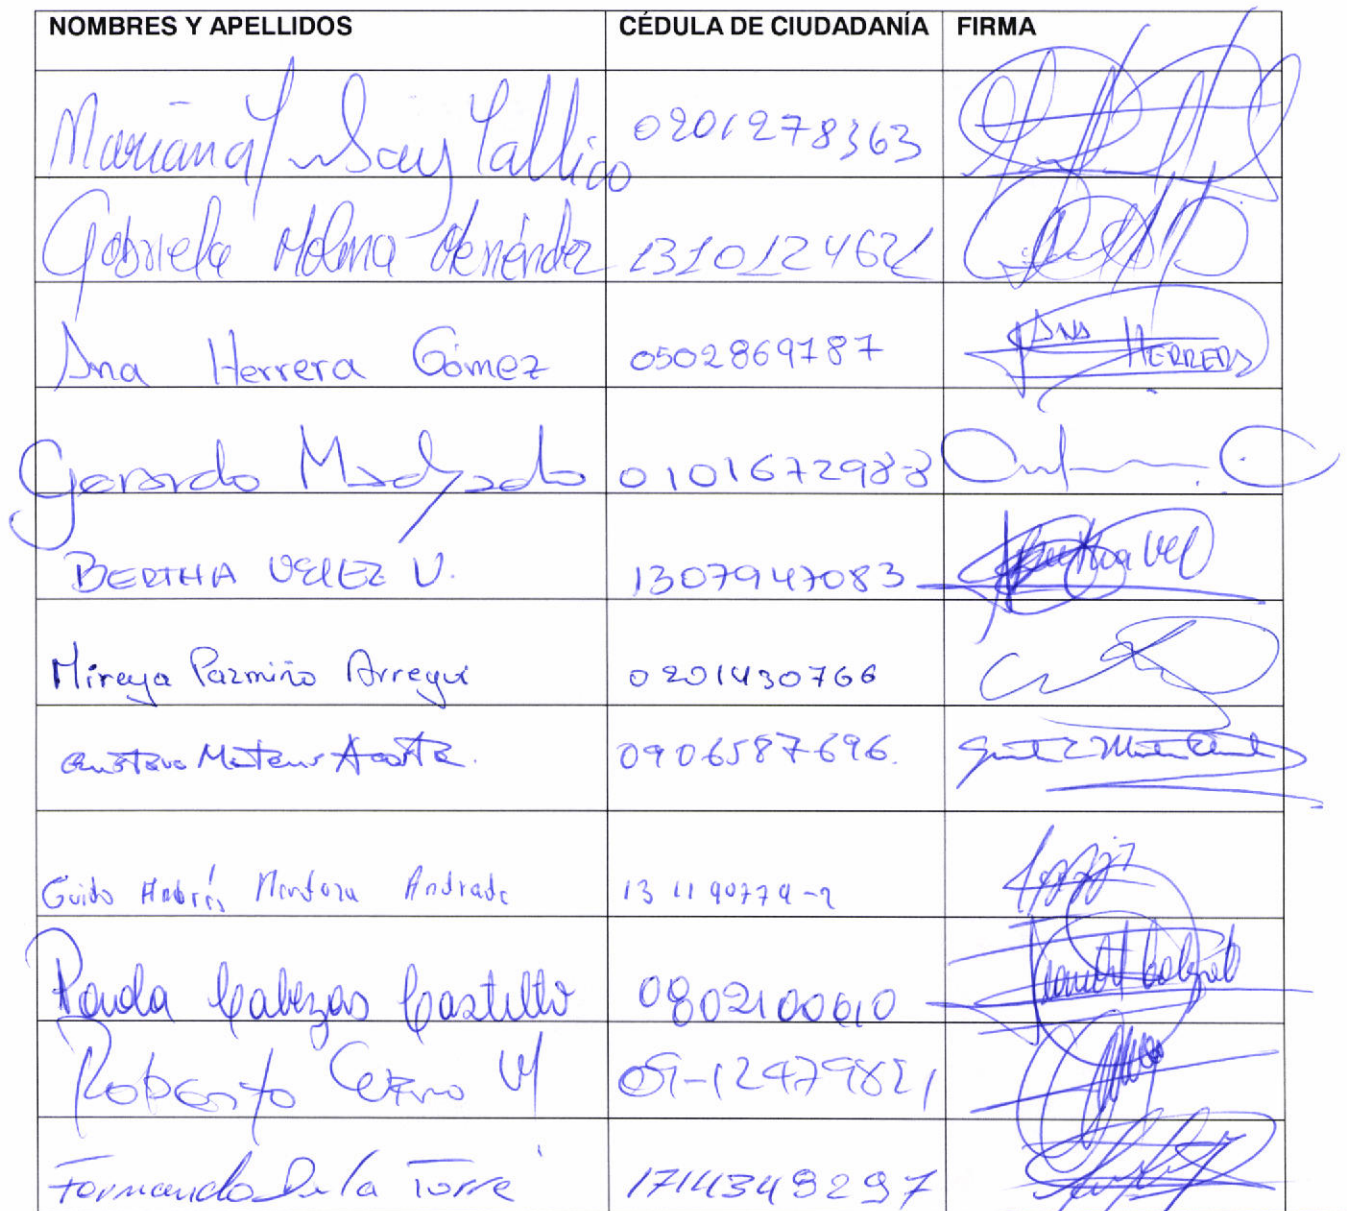 NOMBRES Y APELLIDOS CÉDULA DE CIUDADANÍA FIRMA
Mariana Yumbay Yallico 0201278363
Gabriela Molina Menéndez 1310124621
Ana Herrera Gómez 0502869787 Ana HERRERA
Gerardo Machado 0101672988
BERTHA VELEZ V. 1307947083 Bertha Vel
Mireya Pazmiño Arregui 0201430766
Gustavo Mateus Acosta. 0906587696.
Guido Andrés Mendoza Andrade
Paola Cabezas Castillo 0802100610
Roberto Cuero M 09-12479821
Fernando De la Torre